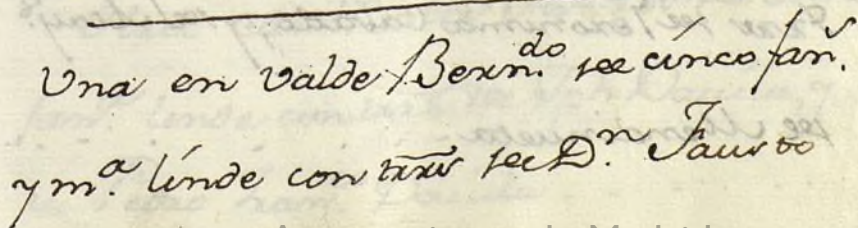 Una en Valde Bern.do de cinco fan.
y m.a linde con trrs de D.n Fausto